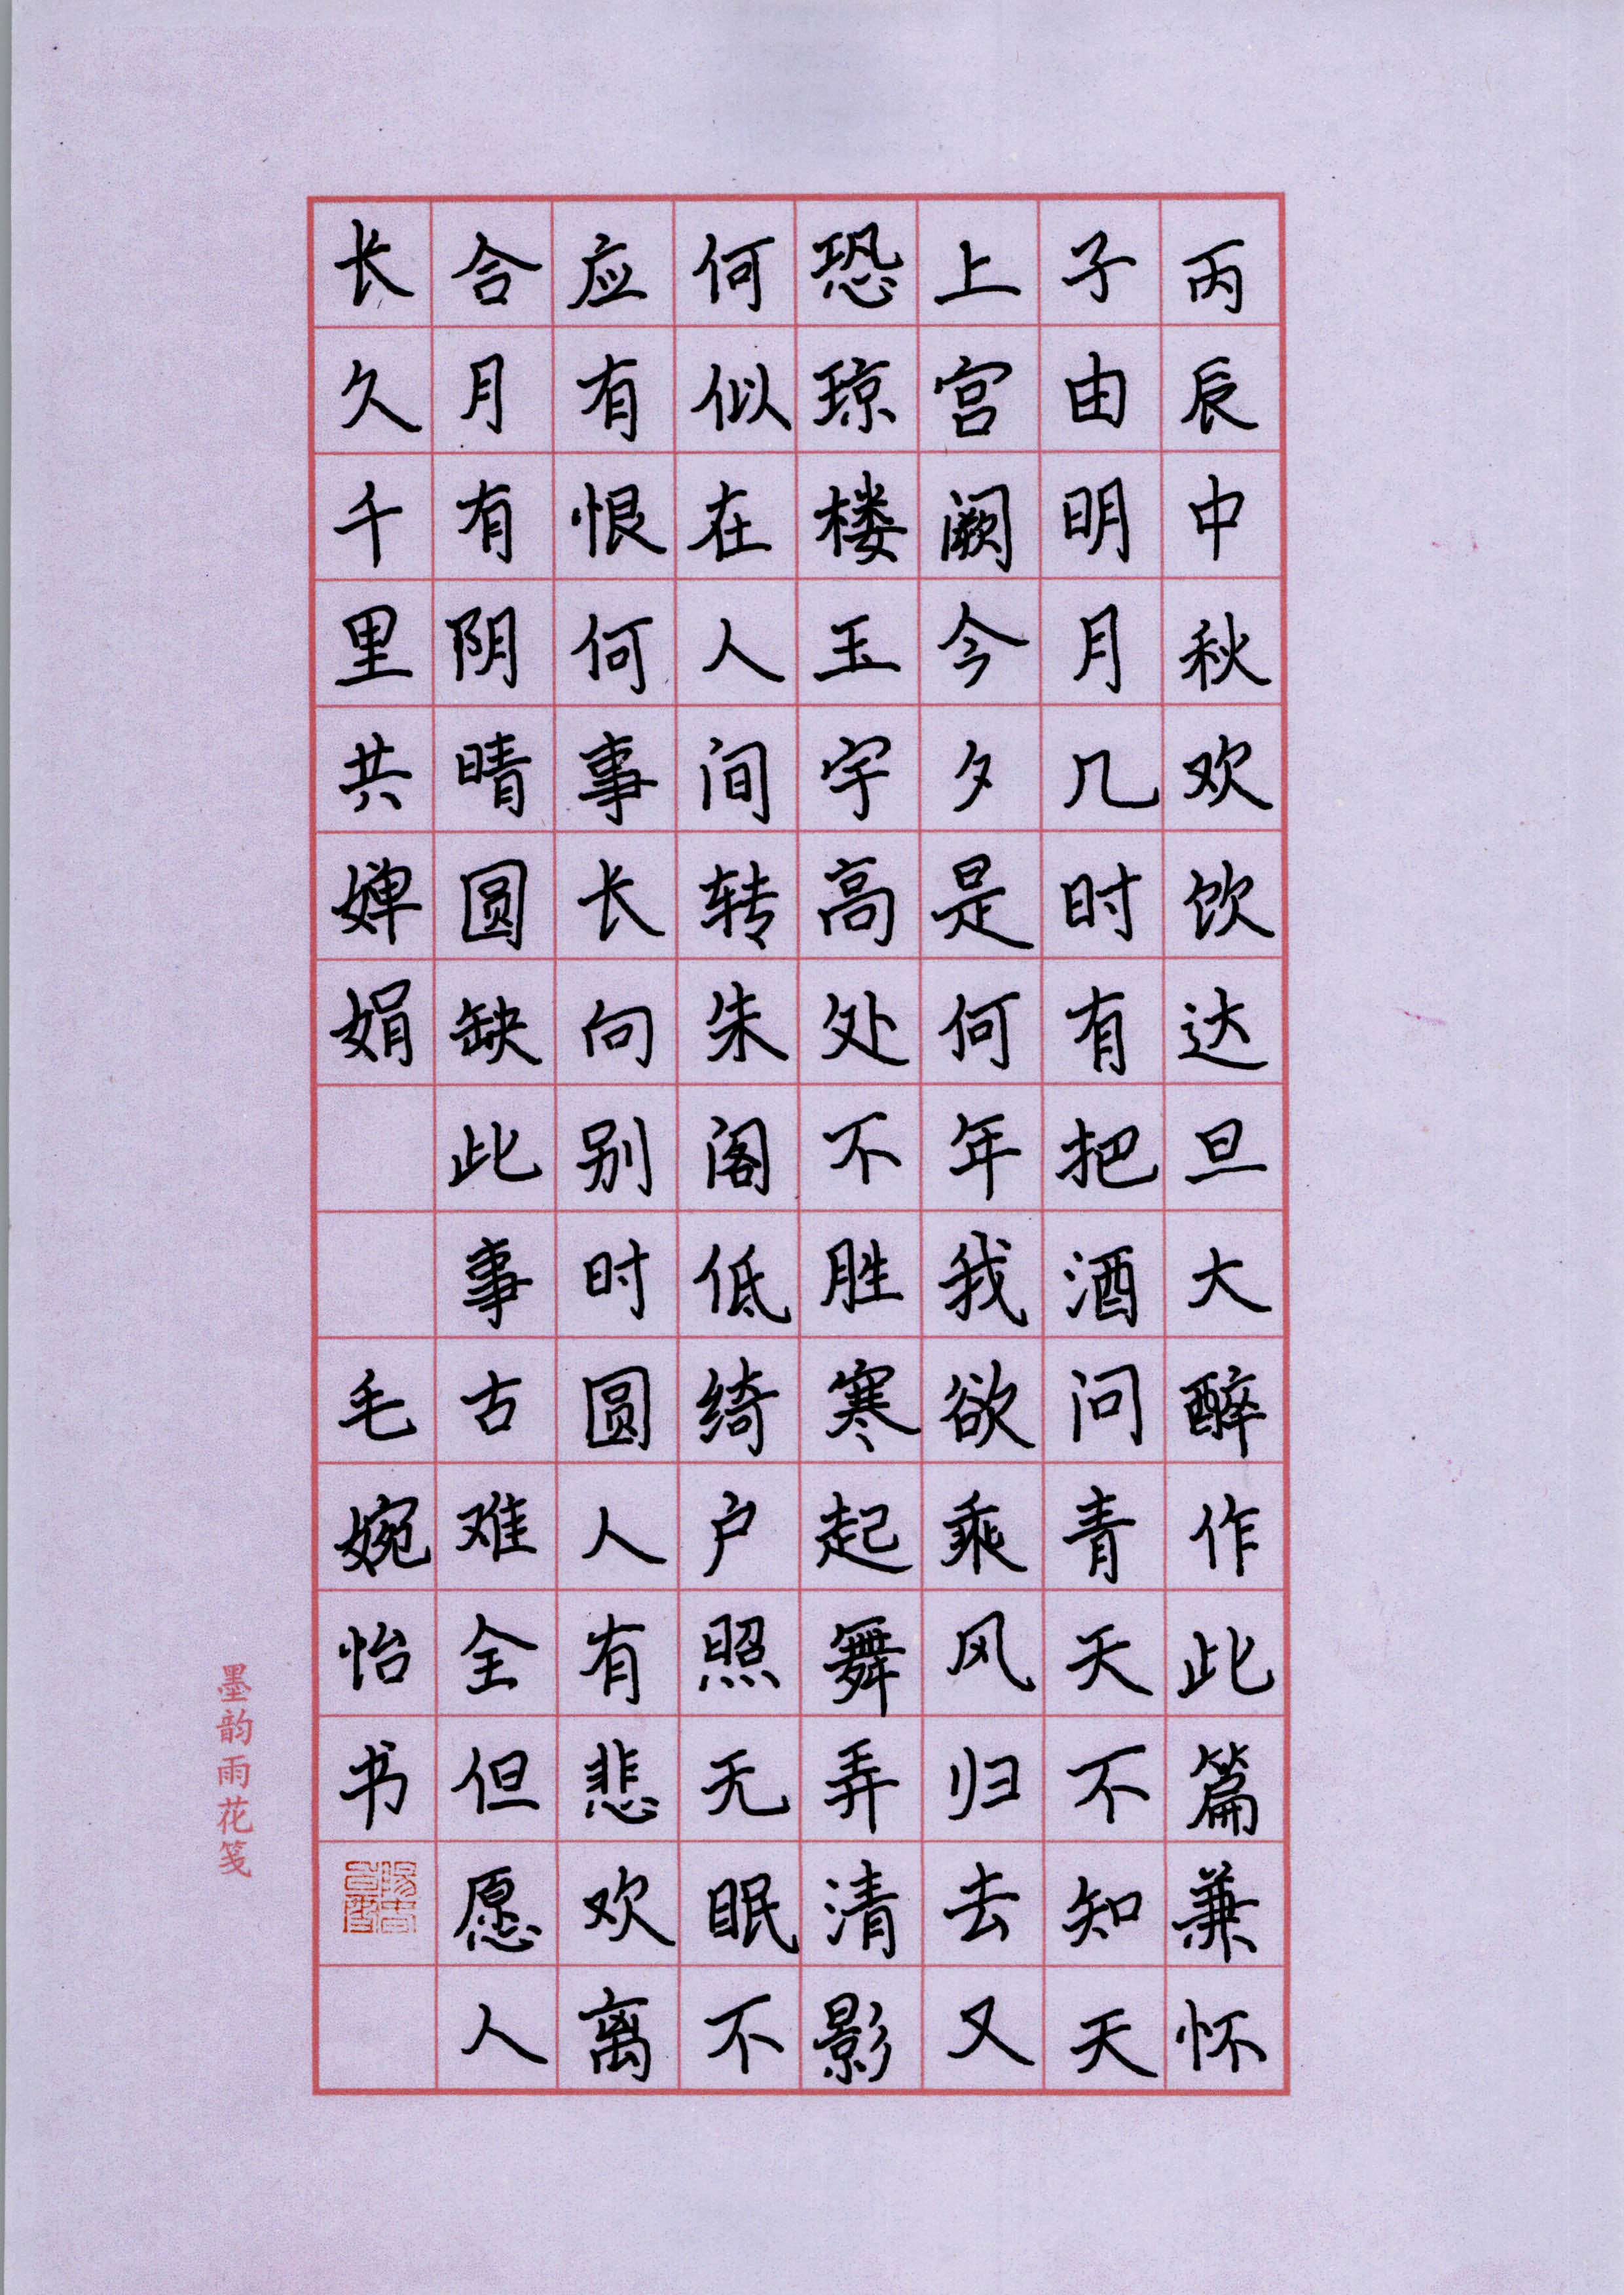 丙辰中秋欢饮达旦大醉作此篇兼怀
子由明月几时有把酒问青天不知天
上宫阙今夕是何年我欲乘风归去又
恐琼楼玉宇高处不胜寒起舞弄清影
何似在人间转朱阁低绮户照无眠不
应有恨何事长向别时圆人有悲欢离
合月有阴晴圆缺此事古难全但愿人
长久千里共婵娟 毛婉怡书
墨韵雨花笺